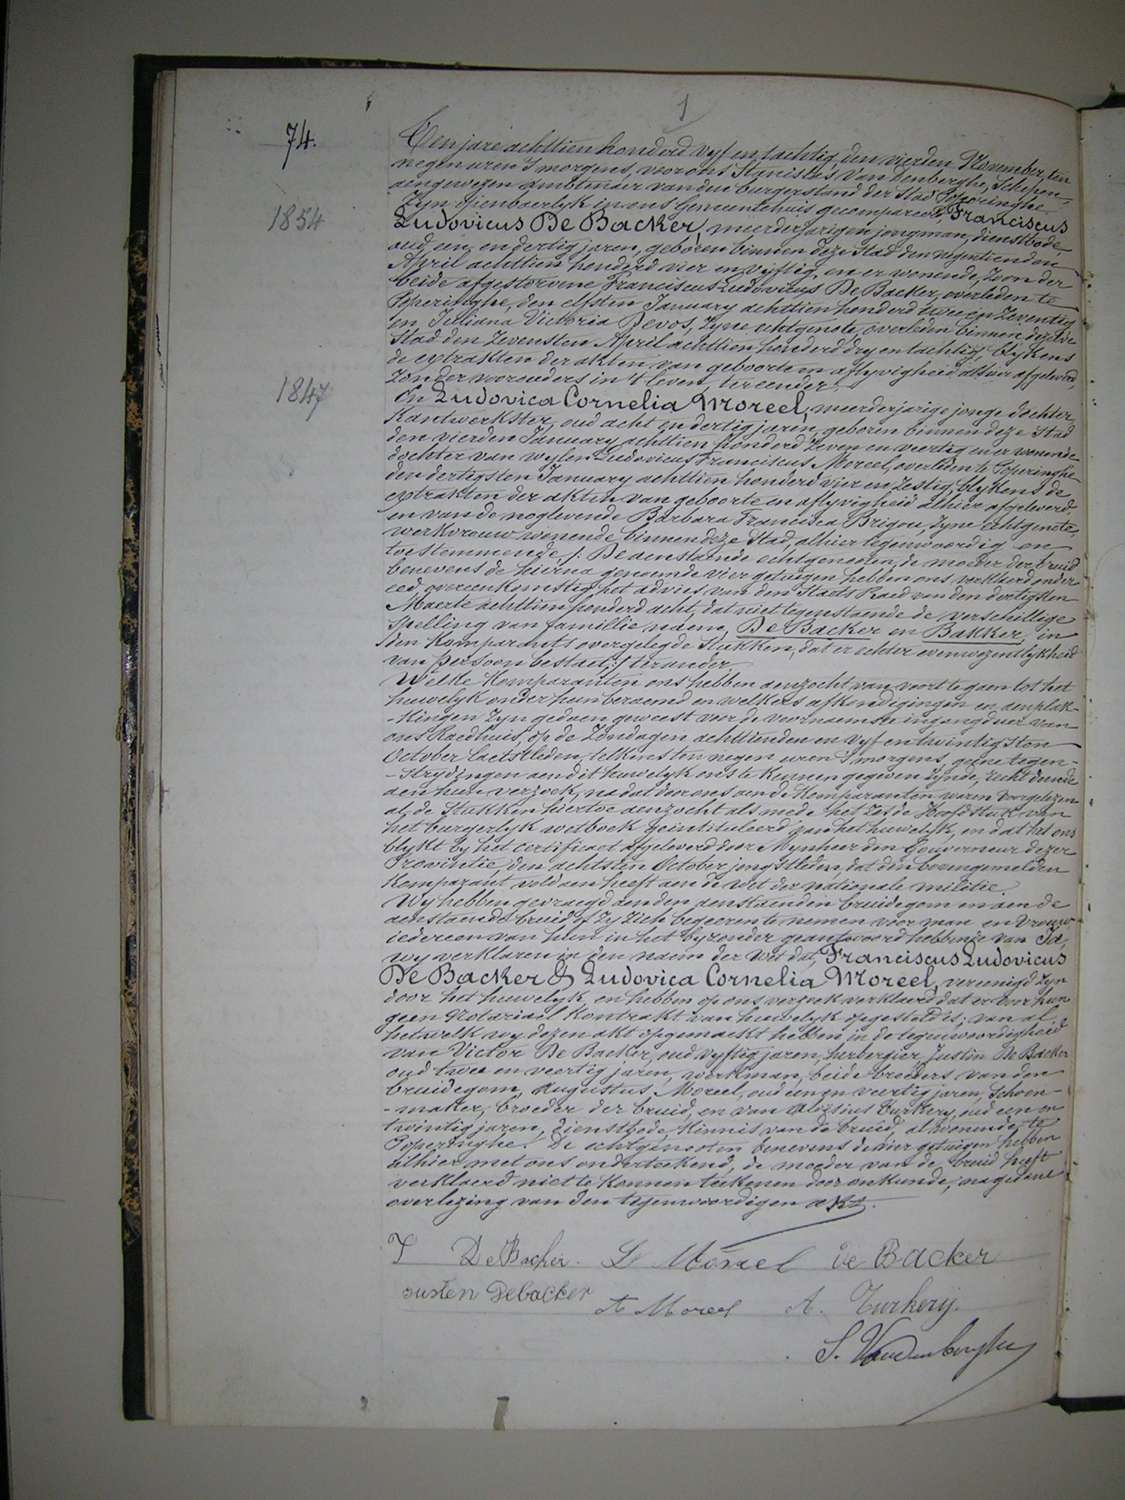 1
74.
Ten jare achttien honderd vyf en tachtig, den vierden November, ten
negen uren 's morgens, voor ons Stanislas Van denberghe, Schepen,
aengewezen ambtenaer van den burgerstand der Stad Poperinghe,
Zyn openbaerlyk in ons Gemeentehuis gecompareerd, Franciscus
1854
Ludovicus De Backer, meerderjarigen jongman, dienstbode,
oud een en dertig jaren, geboren binnen deze Stad den negentienden
April achttien honderd vier en vyftig, en er wonende, Zoon der
beide afgestorvene Franciscus Ludovicus De Backer, overleden te
Poperinghe, den elfsten January achttien honderd twee en Zeventig
en Juliana Victoria Devos, Zyne echtgenote, overleden binnen dezelve
Stad den Zevensten April achttien honderd dry en tachtig, blykens
de extrakten der akten van geboorte en aflyvigheid alhier afgeleverd,
Zonder voorouders in 't leven, ter eender.
1847
En Ludovica Cornelia Moreel, meerderjarige jonge dochter,
Kantwerkster, oud acht en dertig jaren, geboren binnen deze Stad
den vierden January achttien honderd Zeven en veertig en er wonende
dochter van wylen Ludovicus Franciscus Moreel, overleden te Poperinghe
den dertigsten January achttien honderd vier en Zestig, blykens de
extrakten der akten van geboorte en aflyvigheid alhier afgeleverd,
en van de noglevende Barbara Francisca Brigou, Zyne echtgenote,
werkvrouw, wonende binnen deze Stad, alhier tegenwoordig en
toestemmende. De aenstaende echtgenoten, de moeder der bruid
benevens de hierna genoemde vier getuigen hebben ons verklaerd onder
eed, overeenkomstig het advies van den Staets Raed van den dertigsten
Maerte achttien honderd acht, dat niet tegenstaende de verschillige
Spelling van famillie naem, De Backer en Bakker, in
den Komparants overgelegde Stukken, dat er echter evenwezendlykheid
van persoon bestaet, ter ander.
Welke Komparanten ons hebben aenzocht van voort te gaen tot het
huwelyk onder hun beraemd en welkers afkondigingen en aenplak-
-kingen Zyn gedaen geweest voor de voornaemste ingangdeur van
ons Raedhuis, op de Zondagen achttienden en vyf en twintigsten
October laetstleden, telkens ten negen uren 's morgens, geene tegen-
-strydingen aen dit huwelyk ons te kennen gegeven Zynde, recht doende
aen hun verzoek, na dat door ons aen de Komparanten waren voorgelezen
al de Stukken hiertoe aenzocht als mede het Zesde Hoofdstuk van
het burgerlyk wetboek geintituleerd van het huwelyk, en dat het ons
blykt by het certificaet afgeleverd door Mynheer den Gouverneur dezer
Provincie, den achtsten October jongstleden, dat den bovengemelden
Komparant voldaen heeft aen de wet der nationale militie.
Wy hebben gevraegd aen den aenstaenden bruidegom en aen de
aenstaende bruid of Zy Zich begeeren te nemen voor man en vrouw,
iedereen van hun in het byzonder geantwoord hebbende van Ja,
wy verklaren in den naem der wet dat Franciscus Ludovicus
De Backer & Ludovica Cornelia Moreel, vereenigd Zyn
door het huwelyk, en hebben op ons verzoek verklaerd dat er over hun
geen Notariael Kontrakt van huwelyk opgesteld is; van al
hetwelk wy dezen akt opgemaekt hebben in de tegenwoordigheid
van Victor De Backer, oud vyftig jaren, herbergier, Justin De Backer
oud twee en veertig jaren, werkman, beide broeders van den
bruidegom, Augustus Moreel, oud een en veertig jaren, Schoen-
-maker, broeder der bruid, en van Aloisius Turkery, oud een en
twintig jaren, dienstbode, Kinnis van de bruid, al wonende te
Poperinghe. De echtgenooten benevens de vier getuigen hebben
alhier met ons onderteekend, de moeder van de bruid heeft
verklaerd niet te konnen teekenen door onkunde, na gedane
overlezing van den tegenwoordigen akt.
De Backer. L Moreel De Backer
Justen Debacker A Moreel A. Turkery.
S. Vandenberghe